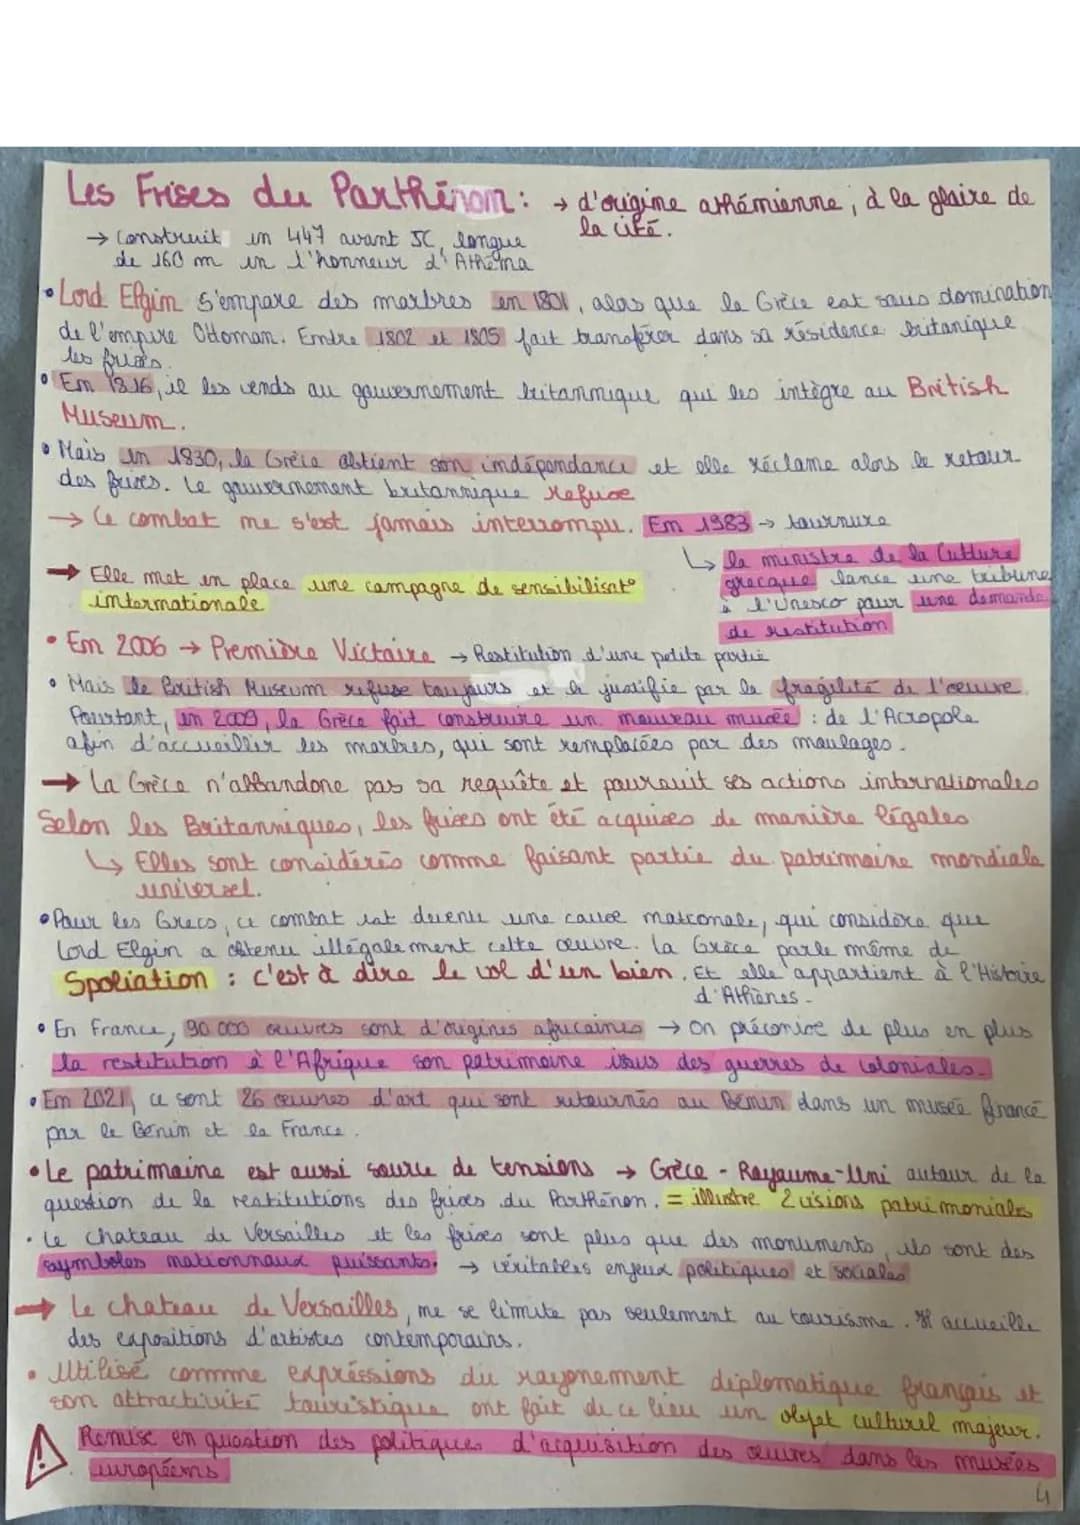 Les Frises du Parthénon : → d'origine athénienne, à la gloire de
la cité.
→ Construit en 447 avant JC, longue
de 160 m en l'honneur d'Athéna
• Lord Elgin s'empare des marbres en 1801, alors que la Grèce est sous domination
de l'empire Ottoman. Entre 1802 et 1805 fait transférer dans sa résidence britanique
les frises.
• En 1816, il les vends au gouvernement britannique qui les intègre au British
Museum.
• Mais en 1830, la Grèce obtient son indépendance et elle réclame alors le retour
des frises. Le gouvernement britannique refuse
→ Ce combat ne s'est jamais interrompu. En 1983 → tournure
↳ la ministre de la Culture
grecque lance une tribune
à l'Unesco pour une demande
de restitution
→ Elle met en place une campagne de sensibilisat°
internationale
• En 2006 → Première Victoire → Restitution d'une petite partie
• Mais le British Museum refuse toujours et le justifie par la fragilité de l'œuvre.
Pourtant, en 2009, la Grèce fait construire un nouveau musée : de l'Acropole
afin d'accueillir les marbres, qui sont remplacées par des moulages.
→ La Grèce n'abbandone pas sa requête et poursuit ses actions internationales
Selon les Britanniques, les frises ont été acquises de manière légales
↳ Elles sont considérés comme faisant partie du patrimoine mondiale
universel.
• Pour les Grecs, ce combat est devenu une cause nationale, qui considère que
Lord Elgin a obtenu illégalement cette œuvre. La Grèce parle même de
Spoliation : c'est à dire le vol d'un bien. Et elle appartient à l'Histoire
d'Athènes.
• En France, 90 000 œuvres sont d'origines africaines → On préconise de plus en plus
la restitution à l'Afrique son patrimoine issus des guerres de coloniales.
• En 2021, ce sont 26 œuvres d'art qui sont retournés au Bénin dans un musée financé
par le Bénin et la France.
• Le patrimoine est aussi source de tensions → Grèce - Royaume-Uni autour de la
question de la restitutions des frises du Parthénon. = illustre 2 visions patrimoniales
• Le chateau de Versailles et les frises sont plus que des monuments, ils sont des
symboles nationnaux puissants. → véritables enjeux politiques et sociales
→ Le chateau de Versailles, ne se limite pas seulement au tourisme. Il accueille
des expositions d'artistes contemporains.
• Utilisé comme expressions du rayonement diplomatique français et
son attractivité touristique ont fait de ce lieu un objet culturel majeur.
⚠ Remise en question des politiques d'acquisition des œuvres dans les musées
européens
4